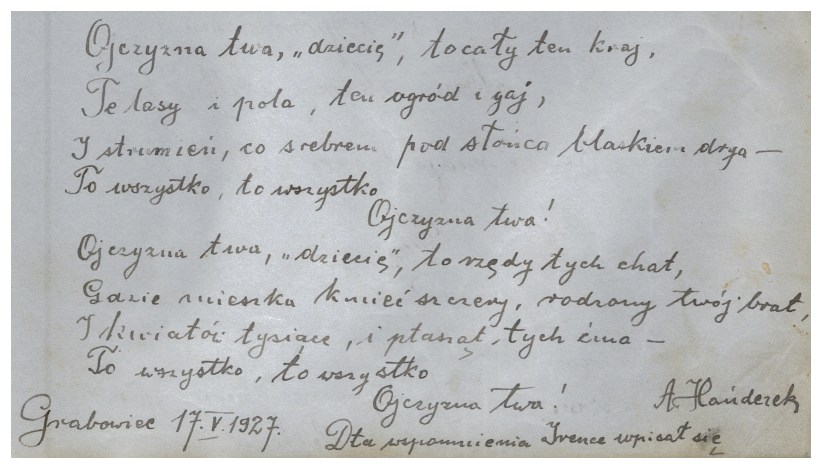 Ojczyzna twa, „dziecię”, to cały ten kraj,
Te lasy i pola, ten ogród i gaj,
I strumień, co srebrem pod słońca blaskiem drga —
To wszystko, to wszystko
Ojczyzna twa!
Ojczyzna twa, „dziecię”, to rzędy tych chat,
Gdzie mieszka kmieć szczery, rodzony twój brat,
I kwiatów tysiące, i ptasząt tych ćma —
To wszystko, to wszystko
Ojczyzna twa!
A Hańderek
Grabowiec 17.V.1927.
Dla wspomnienia Irence wpisał się